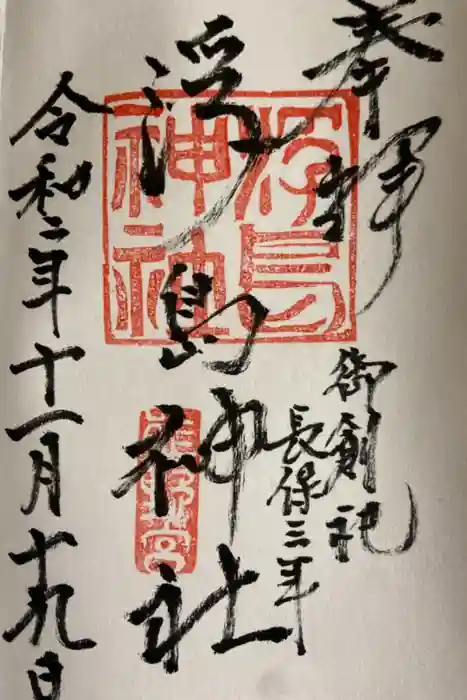 奉拝
御創祀
長保三年
浮島神社
浮島神社
熊野宮
令和二年十一月十九日